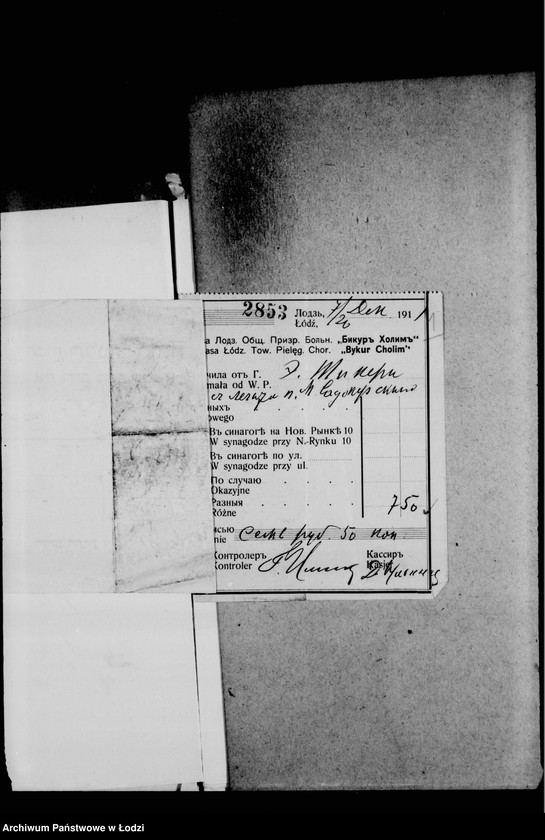 2853 Лодзь, 7/20 Дек 1911
Łódź,
а Лодз. Общ. Призр. Больн. „Бикуръ Холимъ“
asa Łódz. Tow. Pielęg. Chor. „Bykur Cholim“
чила отъ Г. Э.
mała od W. P.
ныхъ
owego
Въ синагогѣ на Нов. Рынкѣ 10
W synagodze przy N.-Rynku 10
Въ синагогѣ по ул.
W synagodze przy ul.
По случаю
Okazyjne
Разныя
Różne 7 50
сью Семь руб. 50 коп
nie
Контролеръ Кассиръ
Kontroler Kasjer
Archiwum Państwowe w Łodzi